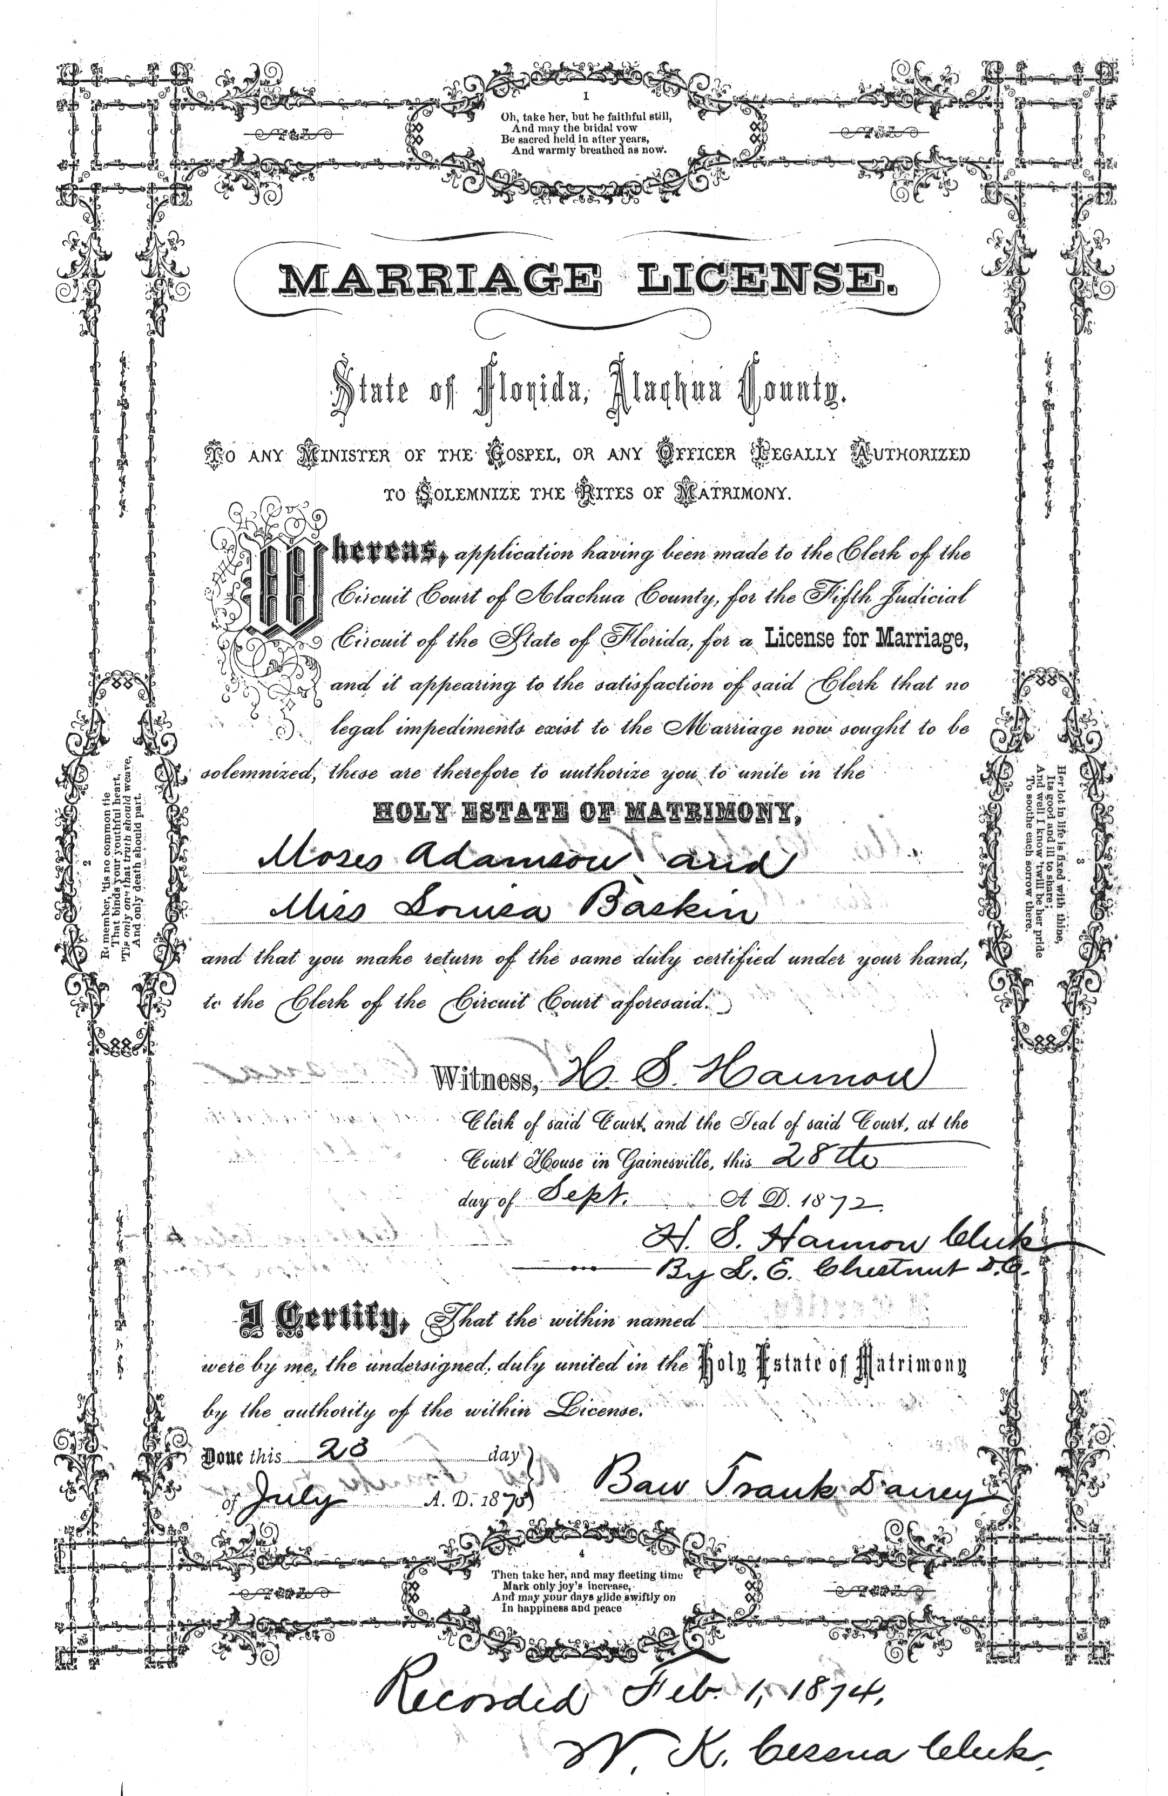 1
Oh, take her, but be faithful still,
And may the bridal vow
Be sacred held in after years,
And warmly breathed as now.
MARRIAGE LICENSE.
State of Florida, Alachua County.
TO ANY MINISTER OF THE GOSPEL, OR ANY OFFICER LEGALLY AUTHORIZED
TO SOLEMNIZE THE RITES OF MATRIMONY.
Whereas, application having been made to the Clerk of the
Circuit Court of Alachua County, for the Fifth Judicial
Circuit of the State of Florida, for a License for Marriage,
and it appearing to the satisfaction of said Clerk that no
legal impediments exist to the Marriage now sought to be
solemnized, these are therefore to authorize you to unite in the
HOLY ESTATE OF MATRIMONY,
Moses Adamson and
Miss Louisa Baskin
and that you make return of the same duly certified under your hand,
to the Clerk of the Circuit Court aforesaid.
2
Remember, 'tis no common tie
That binds your youthful heart,
'Tis only one that truth should weave,
And only death should part.
3
Her lot in life is fixed with thine,
Its good and ill to share;
And well I know 'twill be her pride
To soothe each sorrow there.
Witness, H. S. Harmon
Clerk of said Court, and the Seal of said Court, at the
Court House in Gainesville, this 28th
day of Sept. A D. 1872.
H. S. Harmon Clerk
By L. E. Chestnut D.C.
I Certify, That the within named
were by me, the undersigned, duly united in the Holy Estate of Matrimony
by the authority of the within License.
Done this 23 day
of July A. D. 187
Frank
4
Then take her, and may fleeting time
Mark only joy's increase,
And may your days glide swiftly on
In happiness and peace
Recorded Feb. 1, 1874.
W. K. Cessna Clerk.